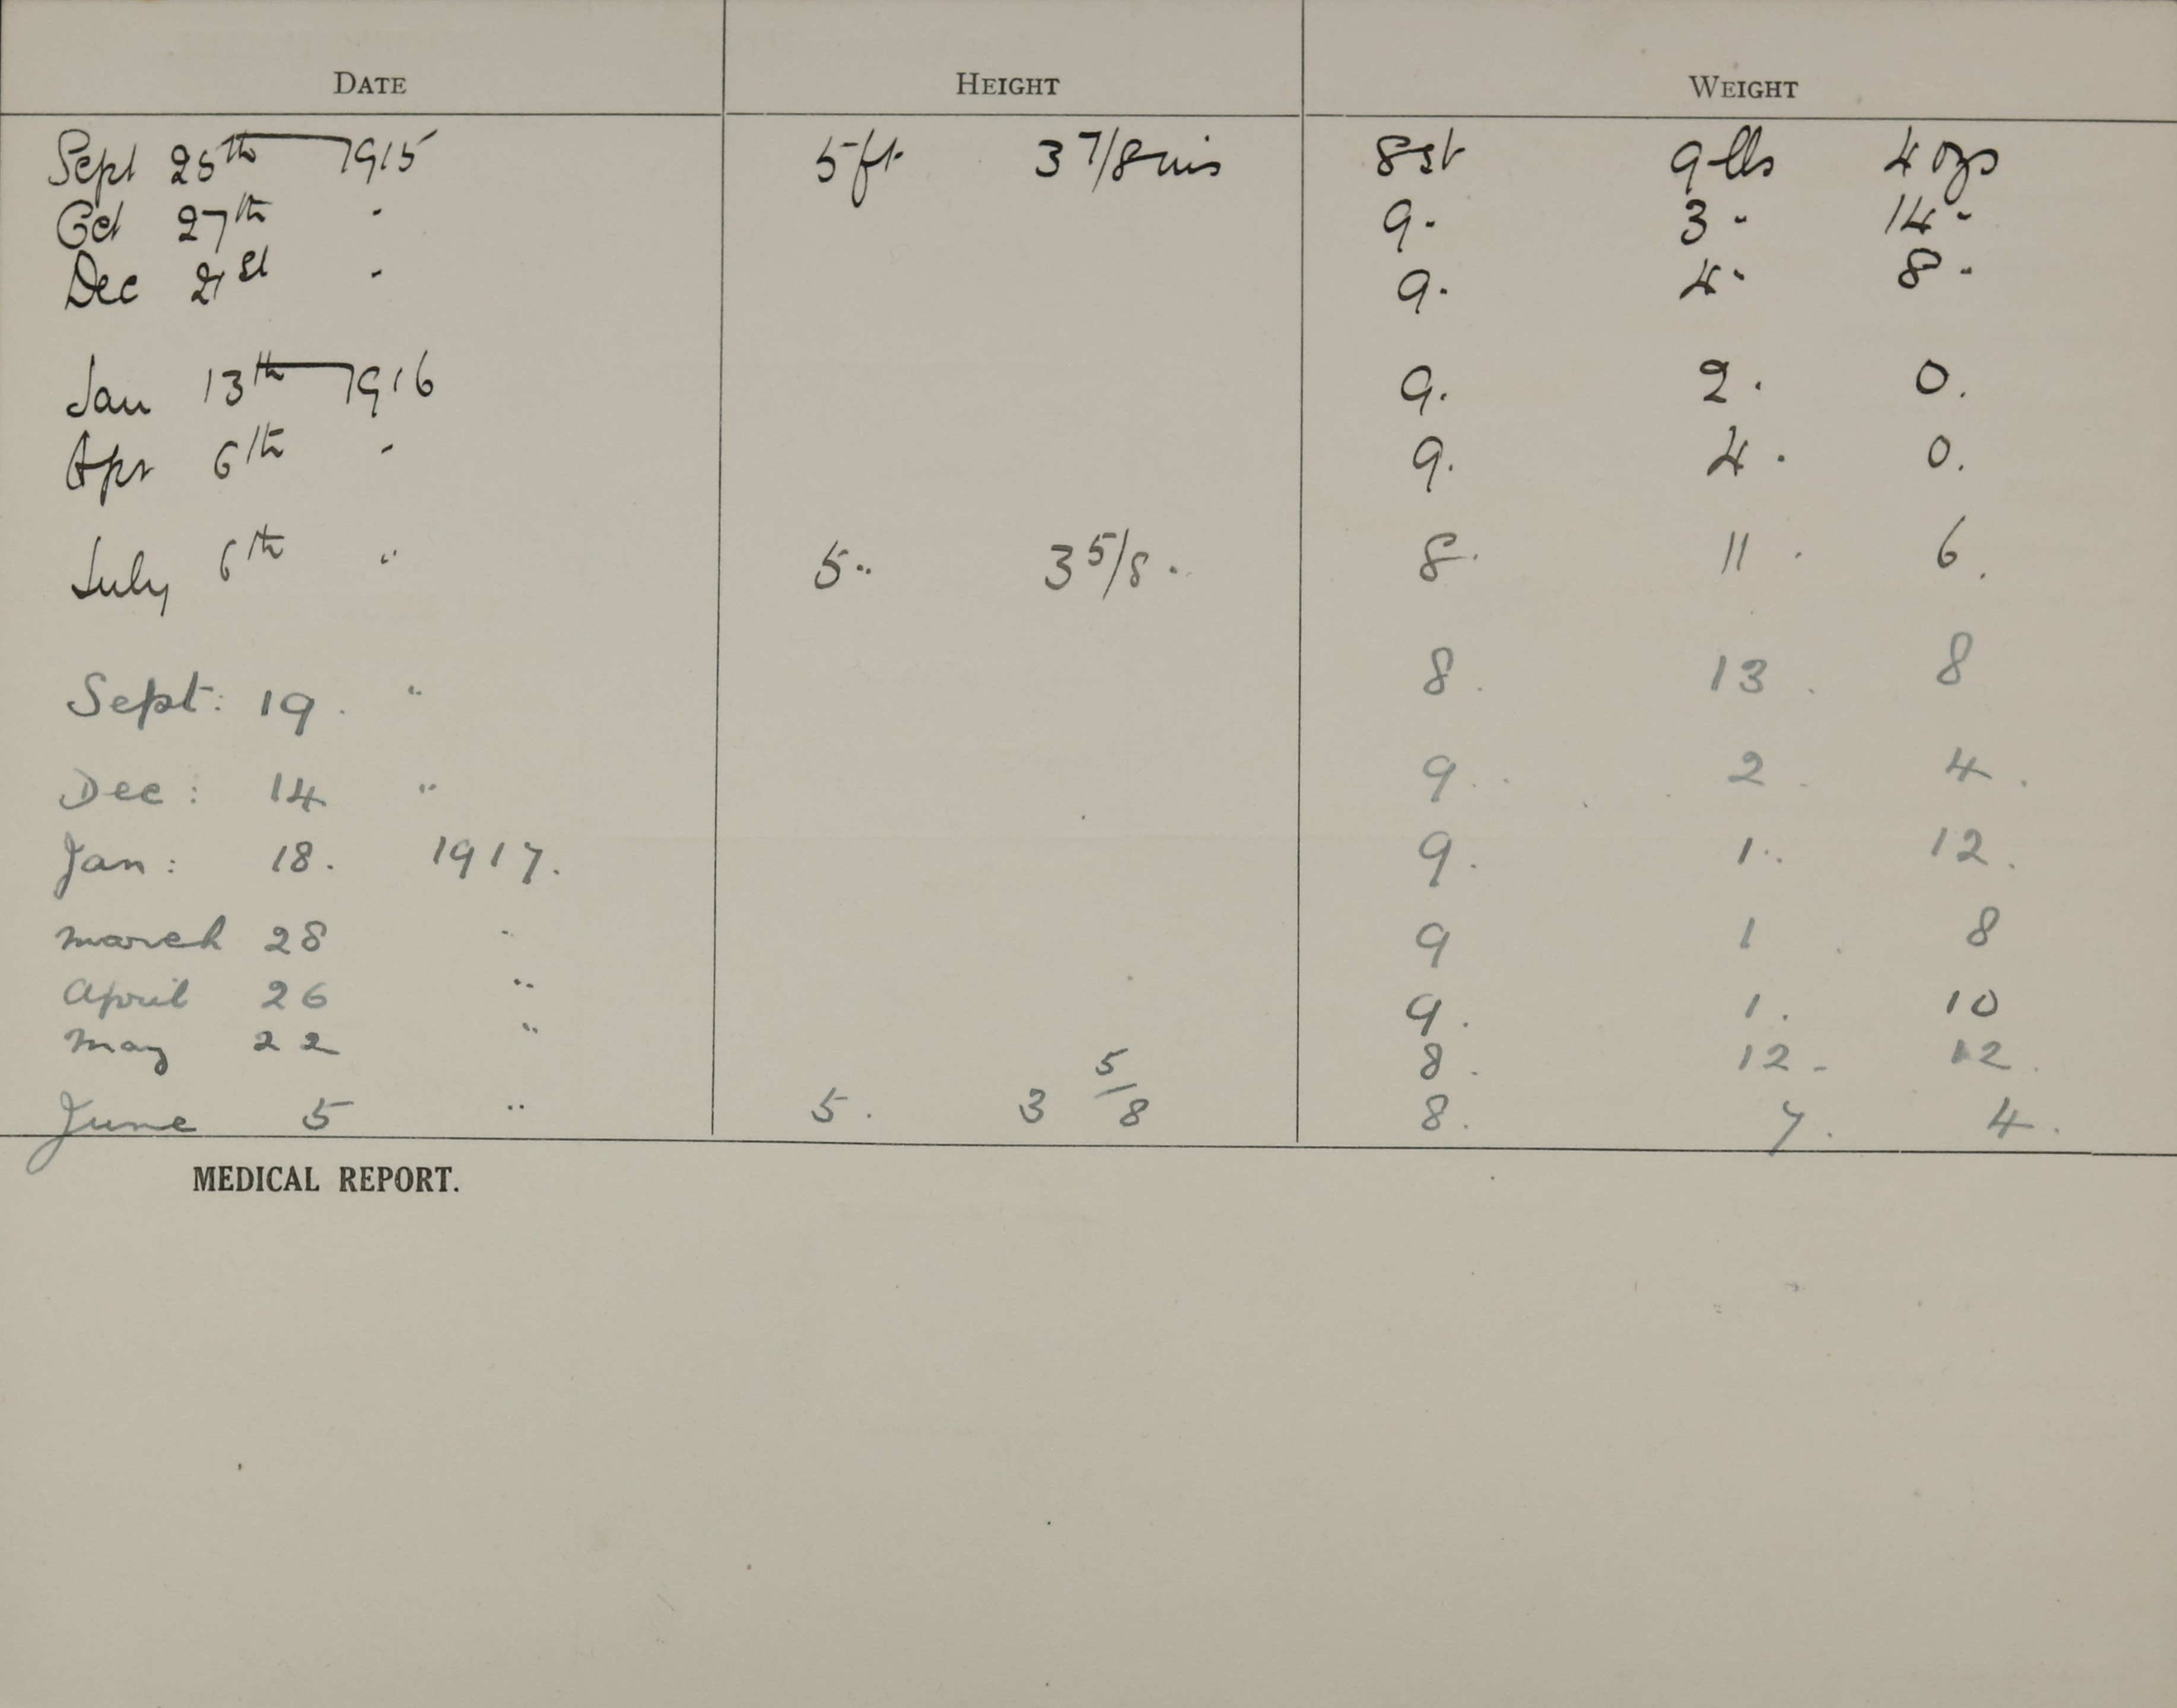 DATE HEIGHT WEIGHT
Sept 25th 1915 5ft 3 7/8 ins 8st 9lbs 4ozs
Oct 27th " 9. 3 " 14 "
Dec 21st " 9. 4 " 8 "
Jan 13th 1916 9. 2. 0.
Apr 6th " 9. 4. 0.
July 6th " 5 " 3 5/8 " 8. 11. 6.
Sept: 19. " 8. 13. 8
Dec: 14 " 9. 2. 4.
Jan: 18. 1917. 9. 1. 12.
March 28 " 9 1. 8
April 26 " 9. 1. 10
May 22 " 8. 12. 12.
June 5 " 5. 3 5/8 8. 7. 4.
MEDICAL REPORT.